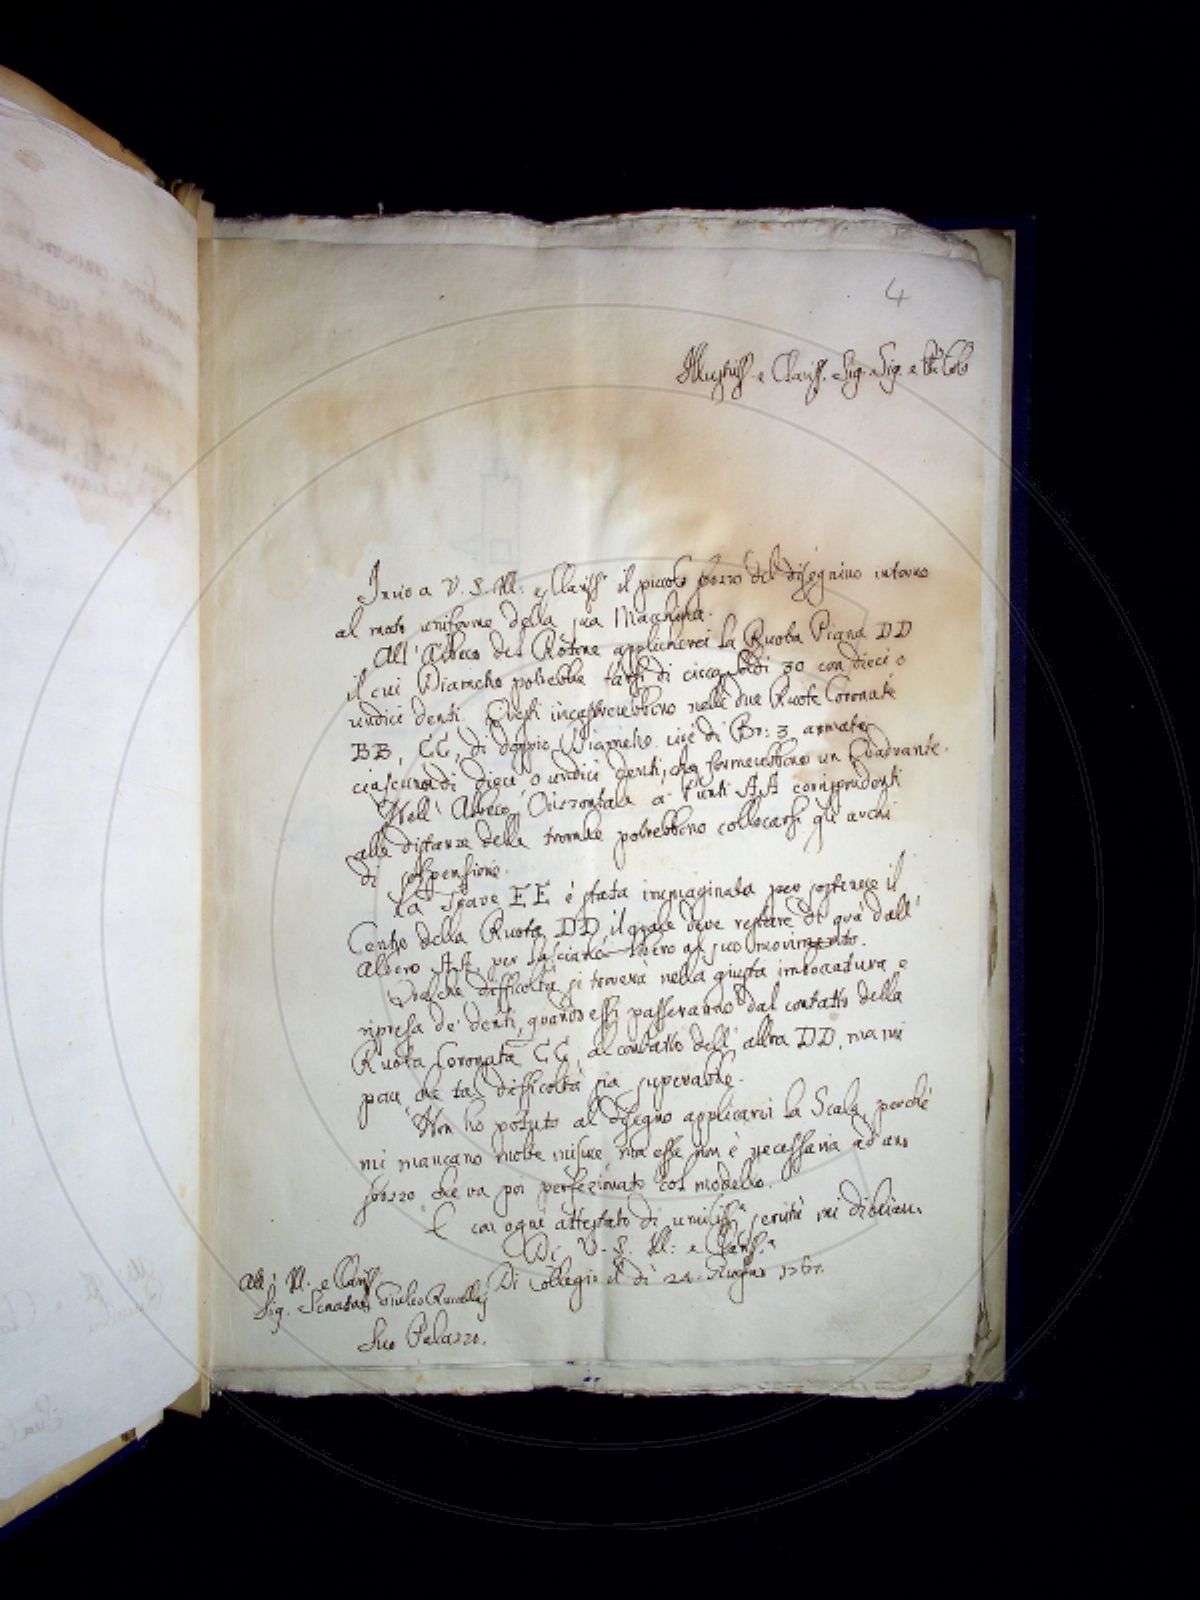 4
Illustriss. e Clariss. Sig. Sig. e
Invio a V. S. Ill: e Clariss.ª il piccolo sbozzo del disegnino intorno
al moto uniforme della sua Macchina.
All' Albero del Rotone applicherei la Ruota Piana DD
il cui Diametro potrebbe farsi di circa soldi 30 con dieci o
undici denti. Questi incastrerebbero nelle due Ruote Coronate
BB, CC, di doppio Diametro cioè di Br: 3 armate
ciascuna di dieci o undici denti, che formerebbero un Quadrante.
Nell' Albero Orizzontale a' Punti AA corrispondenti
alle distanze delle trombe potrebbero collocarsi gli archi
di sospensione.
La Trave EE è stata immaginata per sostenere il
Centro della Ruota DD, il quale deve restare di quà dall'
Albero AA per lasciare libero al suo movimento.
Qualche difficoltà si troverà nella giusta imboccatura e
ripresa de' denti, quando essi passeranno dal contatto della
Ruota Coronata CC, al contatto dell' altra DD, ma mi
pare che tal difficoltà sia superabile.
Non ho potuto al disegno applicarvi la Scala, perchè
mi mancano molte misure ma esse non è necessaria ad uno
sbozzo che va poi perfezionato col modello.
E con ogni attestato di umiliss.ª servitù mi dichiaro
Di V. S. Ill: e Clariss.ª
Di Collegio il dì 24. Giugno 1767.
All' Ill. e Clariss.
Sig. Senatore Giulio Rucellaj
Suo Palazzo.